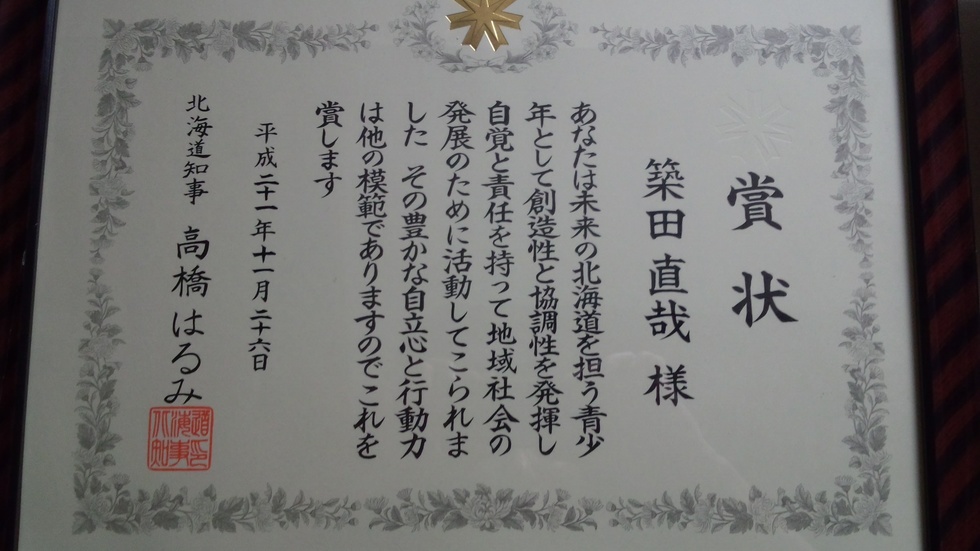 賞状
築田直哉 様
あなたは未来の北海道を担う青少
年として創造性と協調性を発揮し
自覚と責任を持って地域社会の
発展のために活動してこられま
した その豊かな自立心と行動力
は他の模範でありますのでこれを
賞します
平成二十一年十一月二十六日
北海道知事 高橋はるみ
北海道知事之印